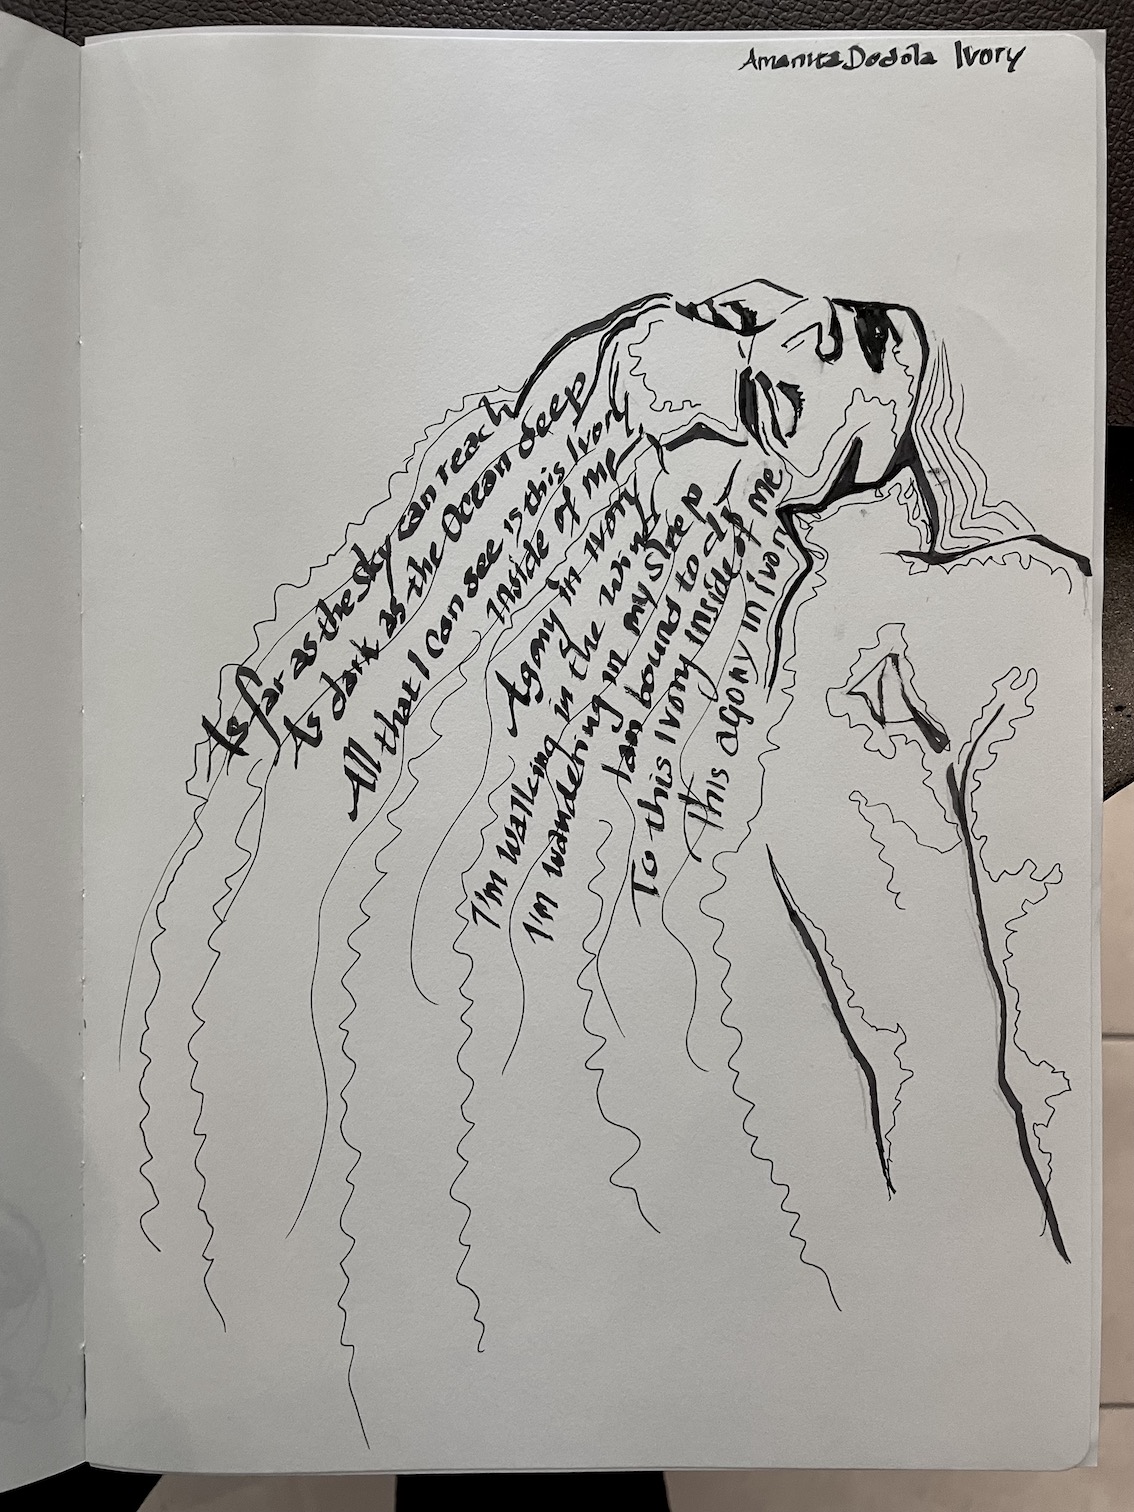 Amanita Dodola Ivory
As far as the sky can reach
As dark as the Ocean deep
All that I can see is this Ivory
Inside of me
Agony in Ivory
I'm walking in the wind
I'm wandering in my sleep
I am bound to
To this Ivory inside of me
This agony in ivory